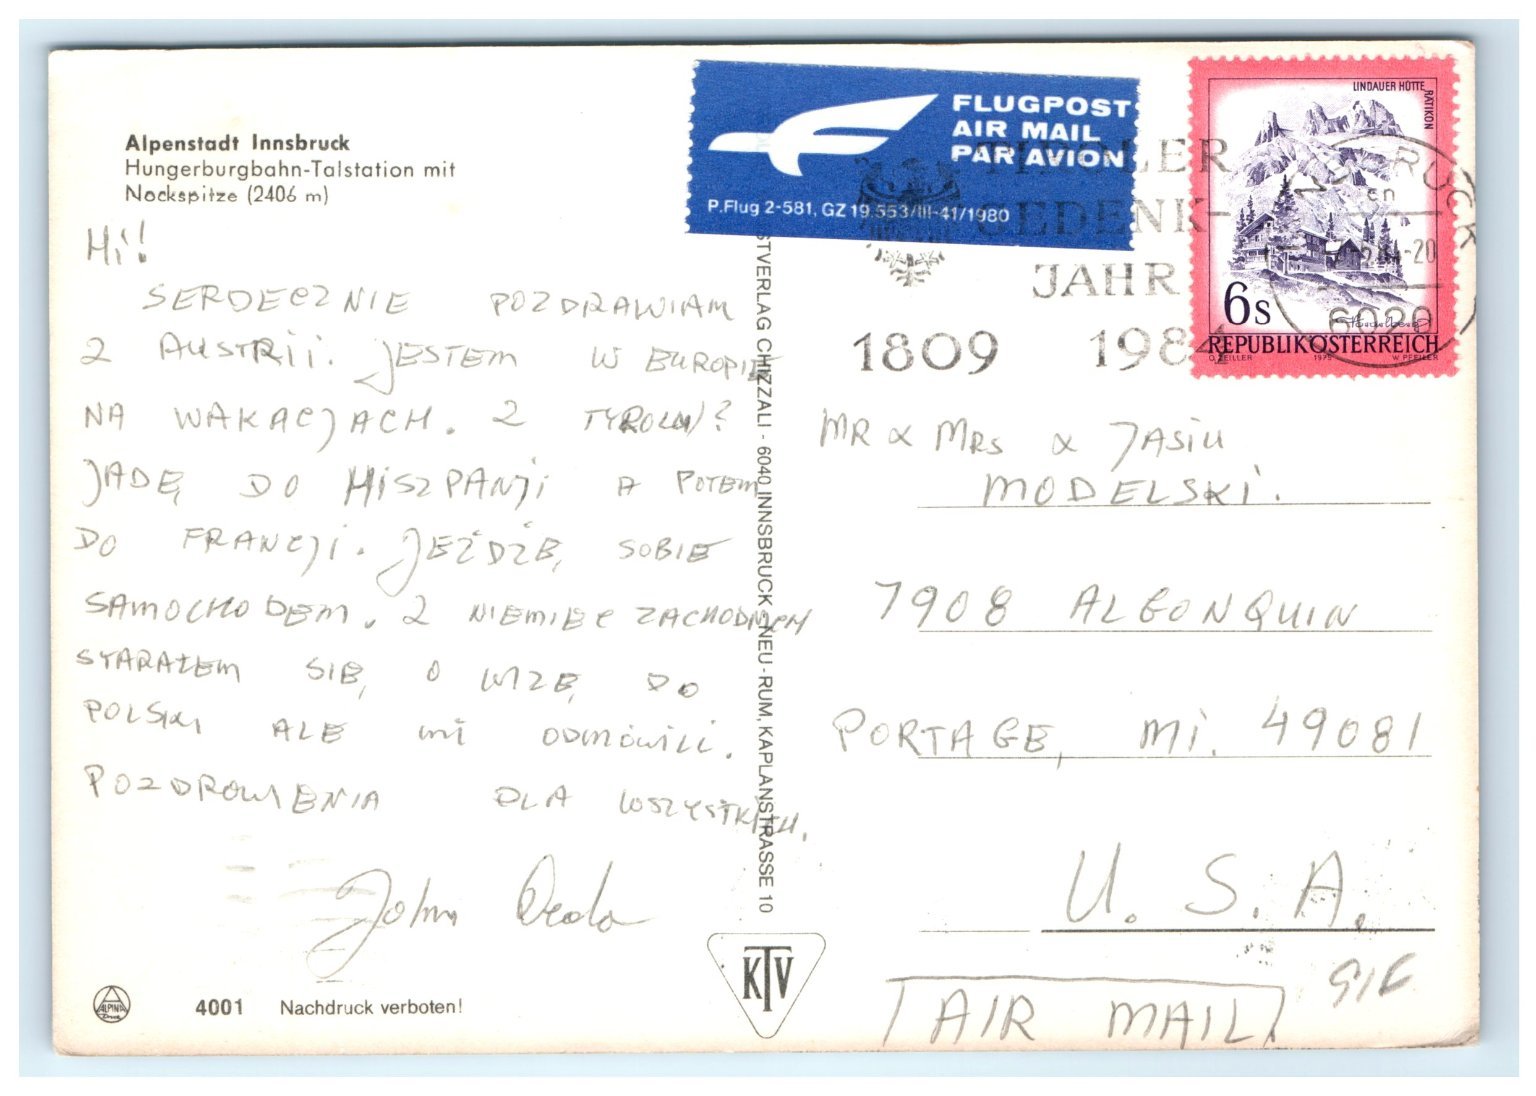 Alpenstadt Innsbruck
Hungerburgbahn-Talstation mit
Nockspitze (2406 m)
Hi!
SERDECZNIE POZDRAWIAM
Z AUSTRII. JESTEM W EUROPIE
NA WAKACJACH. Z TYROLU
JADĘ DO HISZPANJI A POTEM
DO FRANCJI. JEŻDŻĘ SOBIE
SAMOCHODEM. Z NIEMIEC ZACHODNYCH
STARAŁEM SIĘ O WIZĘ DO
POLSKI ALE MI ODMÓWILI.
POZDROWIENIA DLA WSZYSTKICH.
John
4001 Nachdruck verboten!
ALPINA
STVERLAG CHIZZALI - 6040 INNSBRUCK - NEU-RUM, KAPLANSTRASSE 10
KTV
FLUGPOST
AIR MAIL
PAR AVION
P.Flug 2-581, GZ 19.553/III-41/1980
TIROLER
GEDENK-
JAHR
1809 1984
LINDAUER HÜTTE
RÄTIKON
6S
REPUBLIK ÖSTERREICH
O. ZEILLER 1975 W. PFEILER
6020
MR & MRS & JASIU
MODELSKI.
7908 ALGONQUIN
PORTAGE, MI. 49081
U.S.A.
AIR MAIL